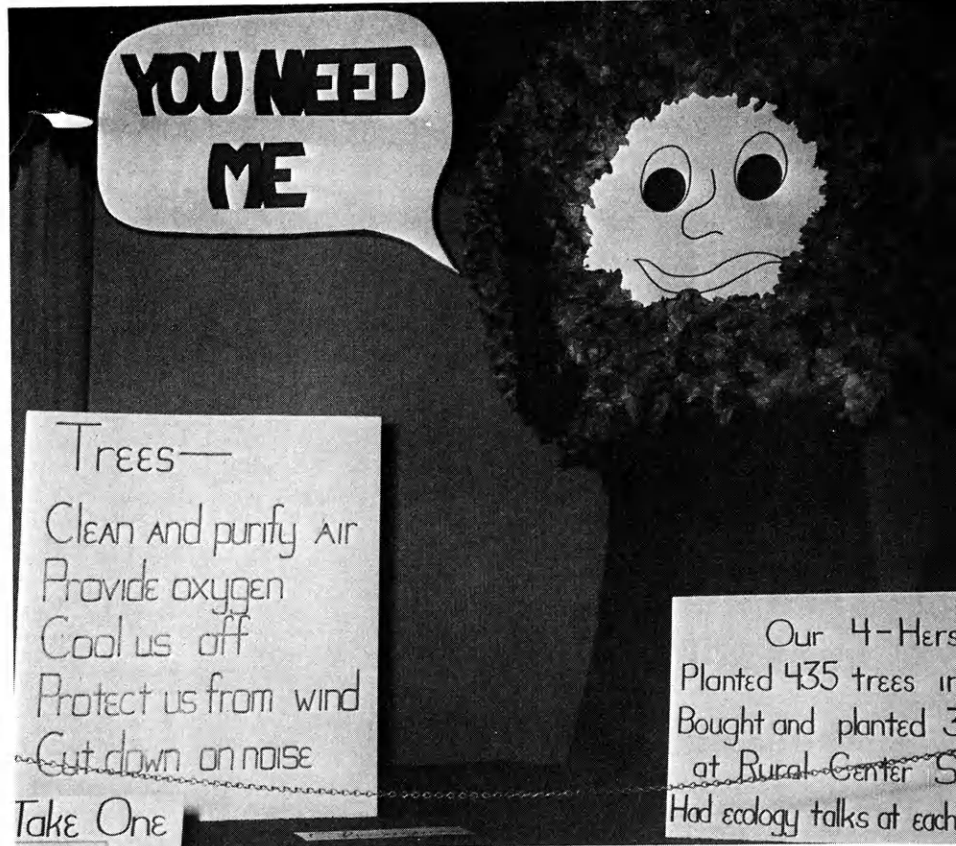 YOU NEED
ME
Trees—
Clean and purify air
Provide oxygen
Cool us off
Protect us from wind
Cut down on noise
Take One
Our 4-Hers
Planted 435 trees
Bought and planted 3
at Rural Center S
Had ecology talks at each